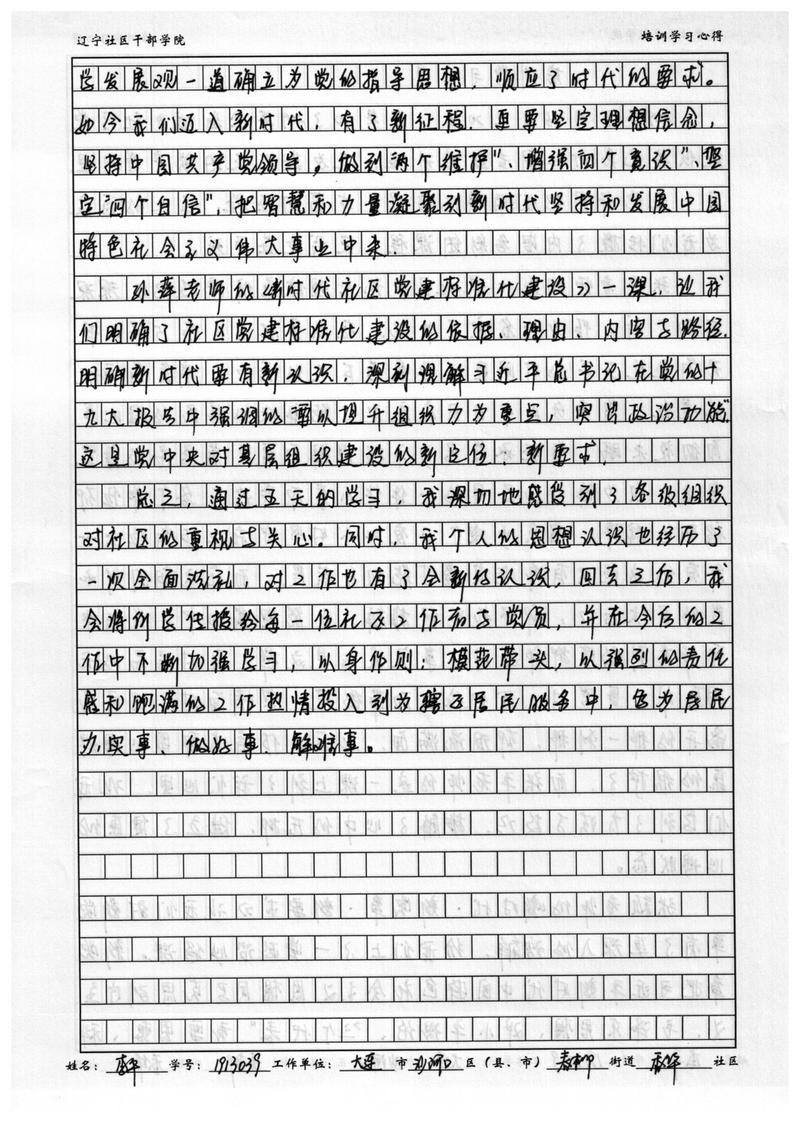 辽宁社区干部学院 培训学习心得
学发展观一道确立为党的指导思想，顺应了时代的要求。
如今我们迈入新时代，有了新征程，更要坚定理想信念，
坚持中国共产党领导。做到"两个维护"、增强"四个意识"、坚
定"四个自信"，把智慧和力量凝聚到新时代坚持和发展中国
特色社会主义伟大事业中来.
孙萍老师的《新时代社区党建标准化建设》一课，让我
们明确了社区党建标准化建设的依据、理由、内容与路径.
明确新时代要有新认识，深刻理解习近平总书记在党的十
九大报告中强调的要以提升组织力为重点，突出政治功能"
这是党中央对基层组织建设的新定位、新要求.
总之，通过五天的学习，我深切地感受到了各级组织
对社区的重视与关心。同时，我个人的思想认识也经历了
一次全面洗礼，对工作也有了全新的认识，回去工作，我
会将所学传授给每一位社区工作者与党员，并在今后的工
作中不断加强学习，以身作则，模范带头，以强烈的责任
感和饱满的工作热情投入到为辖区居民服务中，去为居民
办实事、做好事、解难事。
姓名： 学号：1913039 工作单位：大连 市 沙河口 区（县、市） 春柳 街道 社区